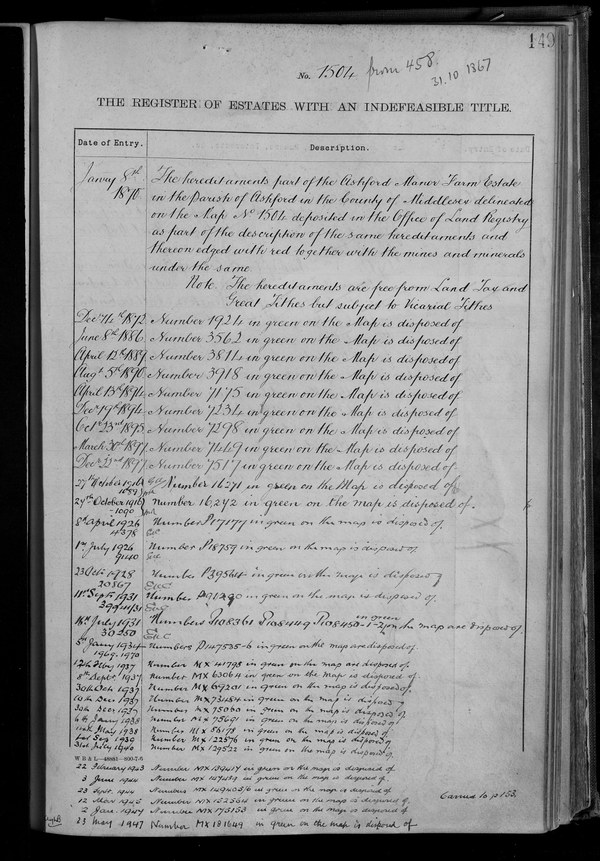 149
No. 1504 from 458
31.10 1367
THE REGISTER OF ESTATES WITH AN INDEFEASIBLE TITLE.
Date of Entry. Description.
January 8th The hereditaments part of the Ashford Manor Farm Estate
1870 in the Parish of Ashford in the County of Middlesex delineated
on the Map No 1504 deposited in the Office of Land Registry
as part of the description of the same hereditaments and
thereon edged with red together with the mines and minerals
under the same
Note The hereditaments are free from Land Tax and
Great Tithes but subject to Vicarial Tithes
1872 Number 1924 in green on the Map is disposed of
June 8th 1886 Number 3562 in green on the Map is disposed of
April 12th 1889 Number 3814 in green on the Map is disposed of
Augt 5th 1890 Number 3918 in green on the Map is disposed of
April 13th 1894 Number 7175 in green on the Map is disposed of
Decr 19th 1894 Number 7234 in green on the Map is disposed of
Octr 23rd 1895 Number 7298 in green on the Map is disposed of
March 30th 1897 Number 7449 in green on the Map is disposed of
Decr 22nd 1897 Number 7517 in green on the Map is disposed of
27th October 1916 Number 16271 in green on the Map is disposed of
1089
27th October 1916 number 16,272 in green on the map is disposed of.
1090
8th April 1926 Number P17177 in green on the map is disposed of
4378
1st July 1926 Number P18759 in green on the map is disposed of
9140
23 Oct 1928 Number P39564 in green on the map is disposed of
20867
11th Sept 1931 Number in green on the map is disposed of.
in green
16th July 1931 Numbers on the map are disposed of.
5th Jany 1934 Numbers P147525-6 in green on the map are disposed of.
1969-1970
12th Feby 1937 Number MX 41798 in green on the map are disposed of.
8th Septr 1937 Number MX 63064 in green on the map is disposed of
30th Oct 1937 Number MX 69201 in green on the map is disposed of.
10th Decr 1937 Number MX 73484 in green on the map is disposed of
30th Decr 1937 Number MX 75060 in green on the map is disposed of
6th Jany 1938 Number MX 75691 in green on the map is disposed of
May 1938 Number MX in green on the map is disposed of
1st Sep 1939 Number MX 122576 in green on the map is disposed of
31st July 1940 Number MX 129522 in green on the map is disposed of
W B & L
22 February 1943 Number MX 139417 in green on the map is disposed of
3 June 1944 Number MX in green on the map is disposed of.
23 Sept. 1944 Numbers MX in green on the map is disposed of Carried to p 153.
12 1945 Number MX 152564 in green on the map is disposed of.
2 Jan. 1947 Number MX 173153 in green on the map is disposed of
23 May 1947 Number MX 181649 in green on the map is disposed of